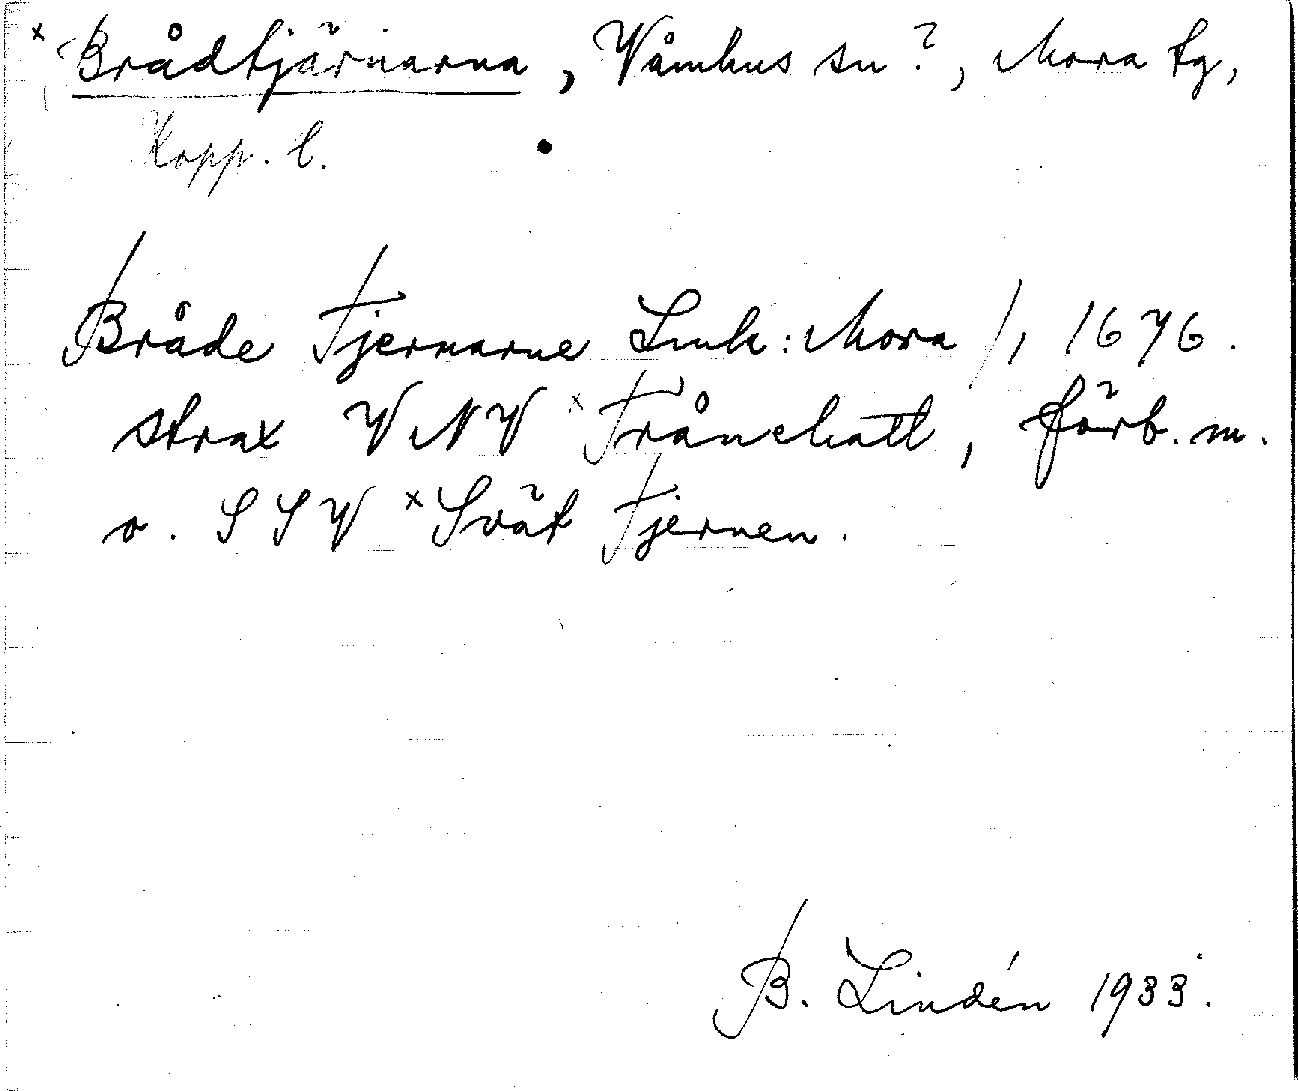 × Brådtjärnarna, Våmhus sn?, Mora tg,
Kopp. l.
Bråde Tjernarne Lmk: Mora /1, 1676.
strax VNV ×Trånehatt, förb. m.
o. SSV ×Svät Tjernen.
B. Lindén 1933.